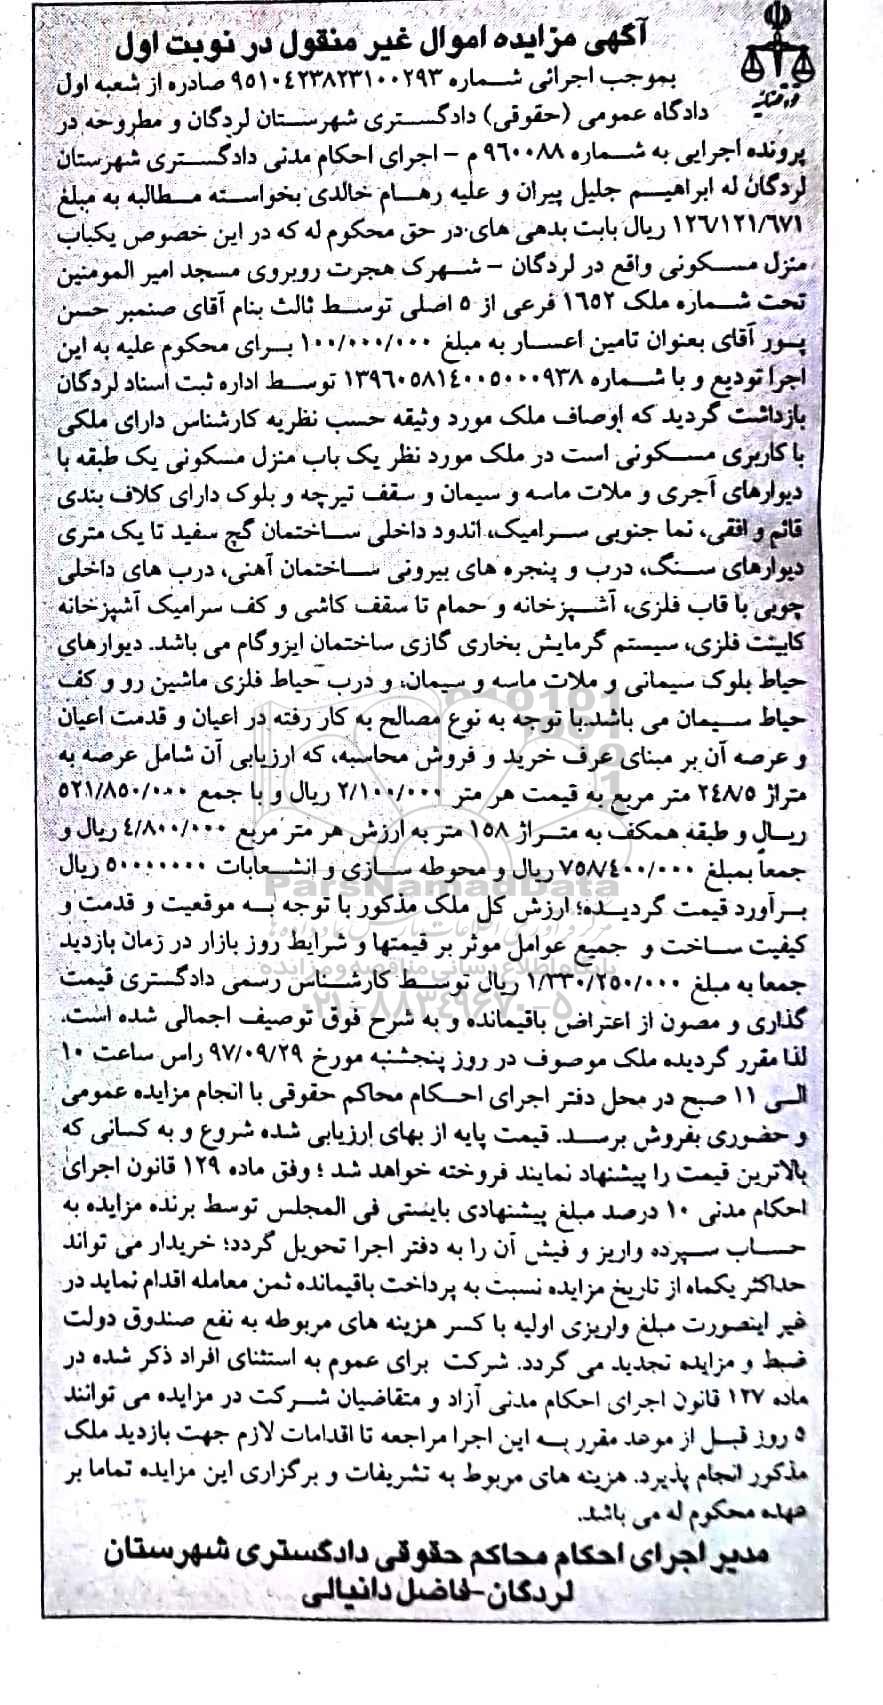 آگهی مزایده اموال غیر منقول در نوبت اول
بموجب اجرائی شماره ۹۵۱۰۴۲۳۸۲۳۱۰۰۲۹۳ صادره از شعبه اول
دادگاه عمومی (حقوقی) دادگستری شهرستان لردگان و مطروحه در
پرونده اجرایی به شماره ۹۶۰۰۸۸ م – اجرای احکام مدنی دادگستری شهرستان
لردگان له ابراهیم جلیل پیران و علیه رهام خالدی بخواسته مطالبه به مبلغ
۱۲۶/۱۲۱/۶۷۱ ریال بابت بدهی های در حق محکوم له که در این خصوص یکباب
منزل مسکونی واقع در لردگان – شهرک هجرت روبروی مسجد امیر المومنین
تحت شماره ملک ۱۶۵۲ فرعی از ۵ اصلی توسط ثالث بنام آقای صنمبر حسن
پور آقای بعنوان تامین اعسار به مبلغ ۱۰۰/۰۰۰/۰۰۰ برای محکوم علیه به این
اجرا تودیع و با شماره ۱۳۹۶۰۵۸۱۴۰۰۵۰۰۰۹۳۸ توسط اداره ثبت اسناد لردگان
بازداشت گردید که اوصاف ملک مورد وثیقه حسب نظریه کارشناس دارای ملکی
با کاربری مسکونی است در ملک مورد نظر یک باب منزل مسکونی یک طبقه با
دیوارهای آجری و ملات ماسه و سیمان و سقف تیرچه و بلوک دارای کلاف بندی
قائم و افقی، نما جنوبی سرامیک، اندود داخلی ساختمان گچ سفید تا یک متری
دیوارهای سنگ، درب و پنجره های بیرونی ساختمان آهنی، درب های داخلی
چوبی با قاب فلزی، آشپزخانه و حمام تا سقف کاشی و کف سرامیک آشپزخانه
کابینت فلزی، سیستم گرمایش بخاری گازی ساختمان ایزوگام می باشد. دیوارهای
حیاط بلوک سیمانی و ملات ماسه و سیمان، و درب حیاط فلزی ماشین رو و کف
حیاط سیمان می باشد.با توجه به نوع مصالح به کار رفته در اعیان و قدمت اعیان
و عرصه آن بر مبنای عرف خرید و فروش محاسبه، که ارزیابی آن شامل عرصه به
متراژ ۲۴۸/۵ متر مربع به قیمت هر متر ۲/۱۰۰/۰۰۰ ریال و با جمع ۵۲۱/۸۵۰/۰۰۰
ریال و طبقه همکف به متراژ ۱۵۸ متر به ارزش هر متر مربع ۴/۸۰۰/۰۰۰ ریال و
جمعاً بمبلغ ۷۵۸/۴۰۰/۰۰۰ ریال و محوطه سازی و انشعابات ۵۰۰۰۰۰۰۰ ریال
برآورد قیمت گردیده؛ ارزش کل ملک مذکور با توجه به موقعیت و قدمت و
کیفیت ساخت و جمیع عوامل موثر بر قیمتها و شرایط روز بازار در زمان بازدید
جمعا به مبلغ ۱/۳۳۰/۲۵۰/۰۰۰ ریال توسط کارشناس رسمی دادگستری قیمت
گذاری و مصون از اعتراض باقیمانده و به شرح فوق توصیف اجمالی شده است.
لذا مقرر گردیده ملک موصوف در روز پنجشنبه مورخ ۹۷/۰۹/۲۹ راس ساعت ۱۰
الی ۱۱ صبح در محل دفتر اجرای احکام محاکم حقوقی با انجام مزایده عمومی
و حضوری بفروش برسد. قیمت پایه از بهای ارزیابی شده شروع و به کسانی که
بالاترین قیمت را پیشنهاد نمایند فروخته خواهد شد ؛ وفق ماده ۱۲۹ قانون اجرای
احکام مدنی ۱۰ درصد مبلغ پیشنهادی بایستی فی المجلس توسط برنده مزایده به
حساب سپرده واریز و فیش آن را به دفتر اجرا تحویل گردد؛ خریدار می تواند
حداکثر یکماه از تاریخ مزایده نسبت به پرداخت باقیمانده ثمن معامله اقدام نماید در
غیر اینصورت مبلغ واریزی اولیه با کسر هزینه های مربوطه به نفع صندوق دولت
ضبط و مزایده تجدید می گردد. شرکت برای عموم به استثنای افراد ذکر شده در
ماده ۱۲۷ قانون اجرای احکام مدنی آزاد و متقاضیان شرکت در مزایده می توانند
۵ روز قبل از موعد مقرر به این اجرا مراجعه تا اقدامات لازم جهت بازدید ملک
مذکور انجام پذیرد. هزینه های مربوط به تشریفات و برگزاری این مزایده تماما بر
عهده محکوم له می باشد.
مدیر اجرای احکام محاکم حقوقی دادگستری شهرستان
لردگان-فاضل دانیالی
ParsNamadData
پایگاه اطلاع رسانی مناقصه و مزایده
۰۲۱-۸۸۳۴۹۶۷۰-۵